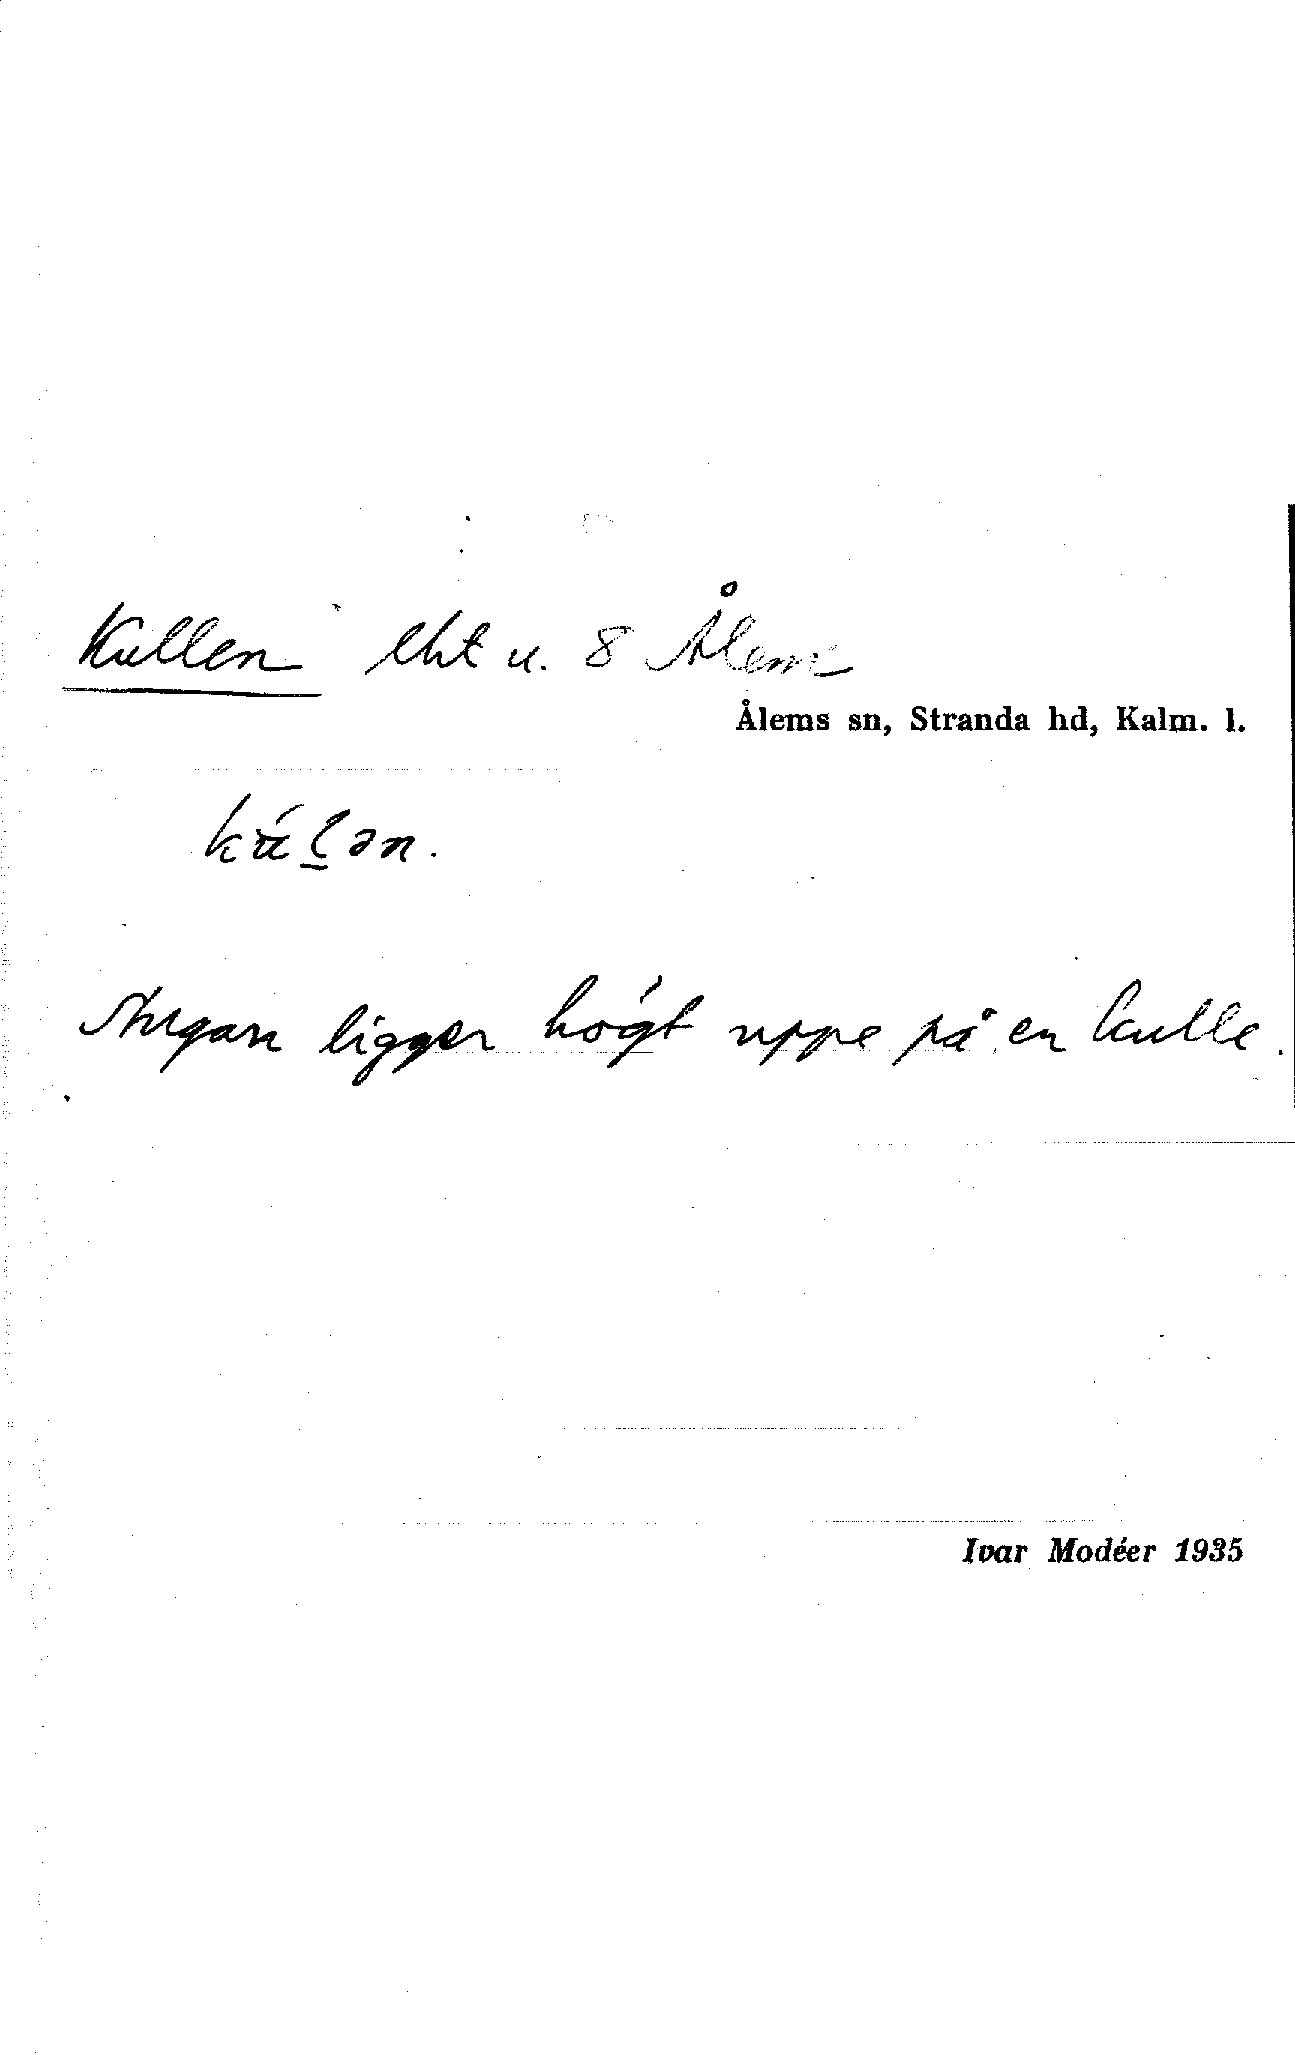 Kullen lht u. 8 Ålem
Ålems sn, Stranda hd, Kalm. l.
ligger högt uppe på en kulle.
Ivar Modéer 1935